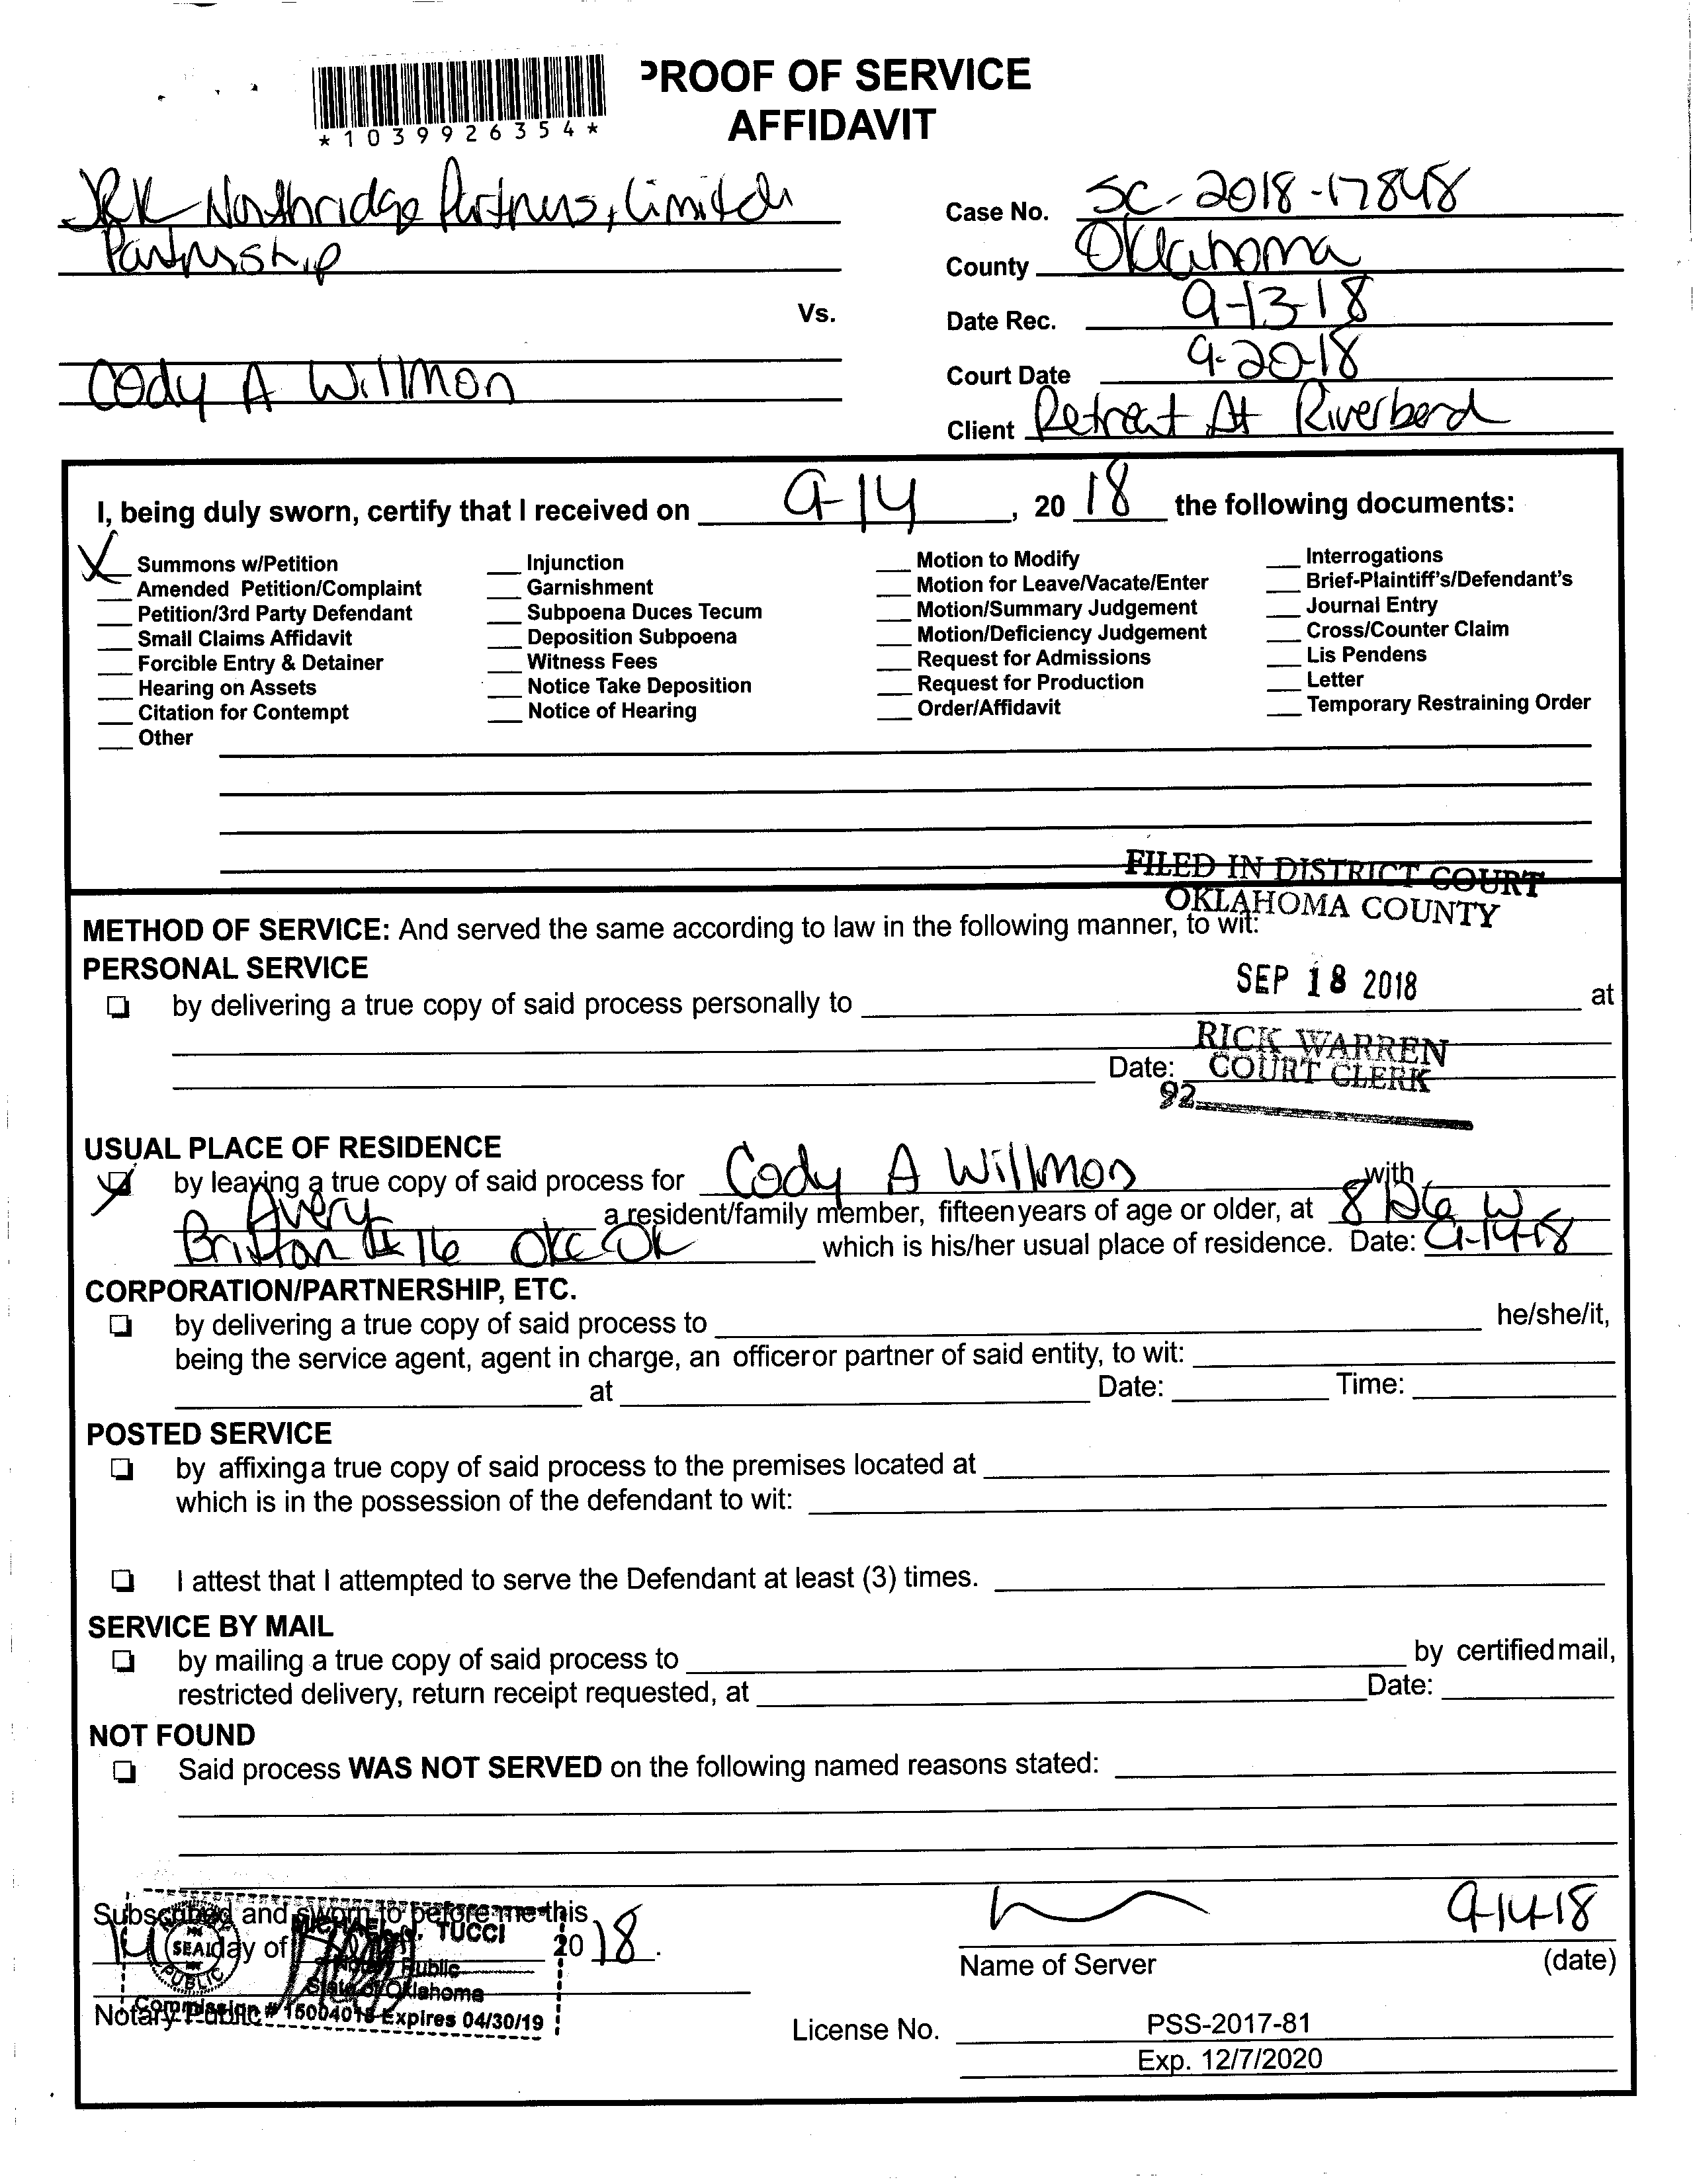 PROOF OF SERVICE
AFFIDAVIT
*1039926354*
JRK Northridge Partners, Limited
Partnership
Vs.
Cody A Willmon
Case No. SC-2018-17848
County Oklahoma
Date Rec. 9-13-18
Court Date 9-20-18
Client Retreat At Riverbend
I, being duly sworn, certify that I received on 9-14, 20 18 the following documents:
X Summons w/Petition
Amended Petition/Complaint
Petition/3rd Party Defendant
Small Claims Affidavit
Forcible Entry & Detainer
Hearing on Assets
Citation for Contempt
Other
Injunction
Garnishment
Subpoena Duces Tecum
Deposition Subpoena
Witness Fees
Notice Take Deposition
Notice of Hearing
Motion to Modify
Motion for Leave/Vacate/Enter
Motion/Summary Judgement
Motion/Deficiency Judgement
Request for Admissions
Request for Production
Order/Affidavit
Interrogations
Brief-Plaintiff's/Defendant's
Journal Entry
Cross/Counter Claim
Lis Pendens
Letter
Temporary Restraining Order
FILED IN DISTRICT COURT
OKLAHOMA COUNTY
METHOD OF SERVICE: And served the same according to law in the following manner, to wit:
PERSONAL SERVICE
SEP 18 2018
by delivering a true copy of said process personally to at
RICK WARREN
Date: COURT CLERK
92
USUAL PLACE OF RESIDENCE
by leaving a true copy of said process for Cody A Willmon with
Avery a resident/family member, fifteen years of age or older, at W
Britton # 16 OKC OK which is his/her usual place of residence. Date: 9-14-18
CORPORATION/PARTNERSHIP, ETC.
by delivering a true copy of said process to he/she/it,
being the service agent, agent in charge, an officer or partner of said entity, to wit:
at Date: Time:
POSTED SERVICE
by affixing a true copy of said process to the premises located at
which is in the possession of the defendant to wit:
I attest that I attempted to serve the Defendant at least (3) times.
SERVICE BY MAIL
by mailing a true copy of said process to by certified mail,
restricted delivery, return receipt requested, at Date:
NOT FOUND
Said process WAS NOT SERVED on the following named reasons stated:
Subscribed and sworn to before me this
14 day of 20 18.
Notary Public
TUCCI
SEAL
PUBLIC
Notary Public
State of Oklahoma
Commission # Expires 04/30/19
9-14-18
Name of Server (date)
License No. PSS-2017-81
Exp. 12/7/2020